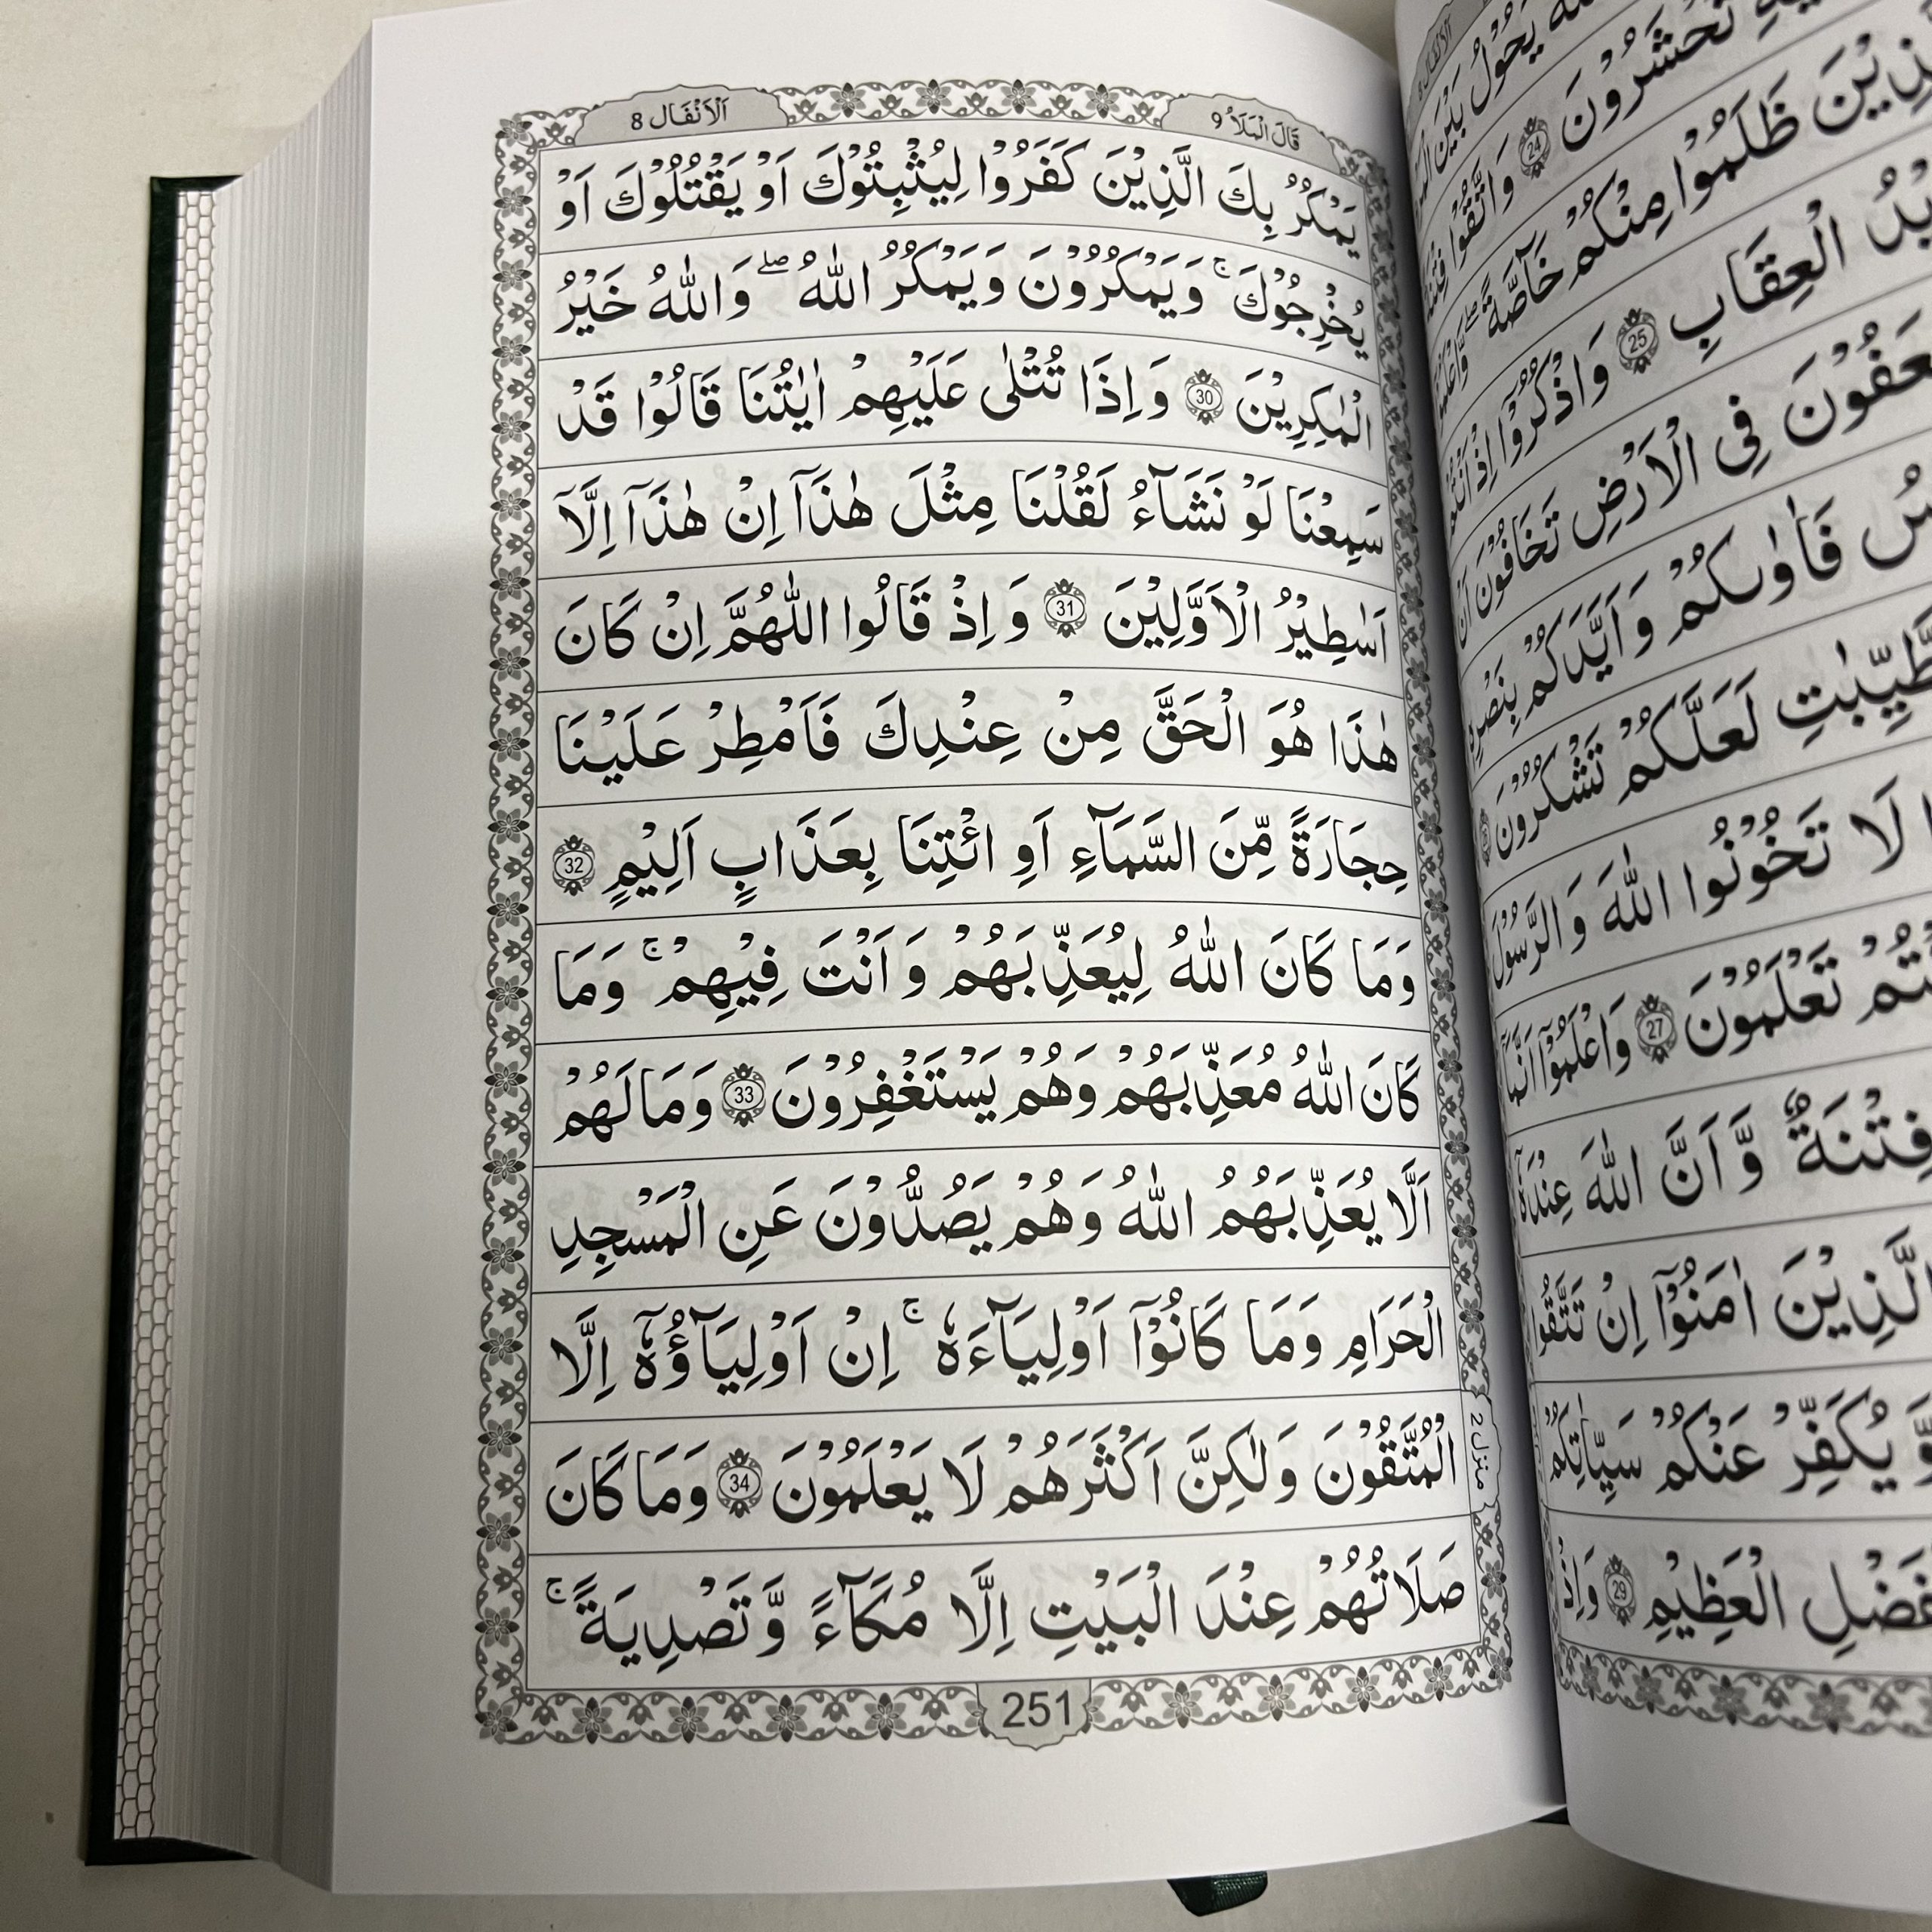 قَالَ الْمَلَاُ 9
اَلْاَنْفَال 8
يَمْكُرُ بِكَ الَّذِيْنَ كَفَرُوْا لِيُثْبِتُوْكَ اَوْ يَقْتُلُوْكَ اَوْ
يُخْرِجُوْكَ ۚ وَيَمْكُرُوْنَ وَيَمْكُرُ اللّٰهُ ۖ وَاللّٰهُ خَيْرُ
الْمٰكِرِيْنَ 30 وَاِذَا تُتْلٰى عَلَيْهِمْ اٰيٰتُنَا قَالُوْا قَدْ
سَمِعْنَا لَوْ نَشَآءُ لَقُلْنَا مِثْلَ هٰذَآ اِنْ هٰذَآ اِلَّآ
اَسٰطِيْرُ الْاَوَّلِيْنَ 31 وَاِذْ قَالُوا اللّٰهُمَّ اِنْ كَانَ
هٰذَا هُوَ الْحَقَّ مِنْ عِنْدِكَ فَاَمْطِرْ عَلَيْنَا
حِجَارَةً مِّنَ السَّمَآءِ اَوِ ائْتِنَا بِعَذَابٍ اَلِيْمٍ 32
وَمَا كَانَ اللّٰهُ لِيُعَذِّبَهُمْ وَاَنْتَ فِيْهِمْ ۚ وَمَا
كَانَ اللّٰهُ مُعَذِّبَهُمْ وَهُمْ يَسْتَغْفِرُوْنَ 33 وَمَا لَهُمْ
اَلَّا يُعَذِّبَهُمُ اللّٰهُ وَهُمْ يَصُدُّوْنَ عَنِ الْمَسْجِدِ
الْحَرَامِ وَمَا كَانُوْٓا اَوْلِيَآءَهٗ ۚ اِنْ اَوْلِيَآؤُهٗٓ اِلَّا
الْمُتَّقُوْنَ وَلٰكِنَّ اَكْثَرَهُمْ لَا يَعْلَمُوْنَ 34 وَمَا كَانَ
صَلَاتُهُمْ عِنْدَ الْبَيْتِ اِلَّا مُكَآءً وَّتَصْدِيَةً ۚ
منزل 2
251
يَحُوْلُ بَيْنَ
تُحْشَرُوْنَ 24 وَاتَّقُوْا فِتْنَةً
ظَلَمُوْا مِنْكُمْ خَآصَّةً ۖ
الْعِقَابِ 25 وَاذْكُرُوْٓا اِذْ اَنْتُمْ
فِى الْاَرْضِ تَخَافُوْنَ اَنْ
فَاٰوٰىكُمْ وَاَيَّدَكُمْ بِنَصْرِهٖ
لَعَلَّكُمْ تَشْكُرُوْنَ
لَا تَخُوْنُوا اللّٰهَ وَالرَّسُوْلَ
تَعْلَمُوْنَ 27 وَاعْلَمُوْٓا اَنَّمَآ
فِتْنَةٌ وَّاَنَّ اللّٰهَ عِنْدَهٗٓ
الَّذِيْنَ اٰمَنُوْٓا اِنْ تَتَّقُوا
وَّيُكَفِّرْ عَنْكُمْ سَيِّاٰتِكُمْ
الْعَظِيْمِ 29 وَاِذْ